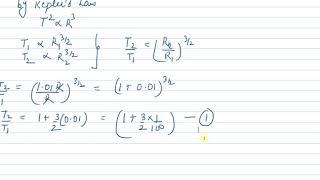 by Kepler's Law
T² ∝ R³
T₁ ∝ R₁^3/2
T₂ ∝ R₂^3/2
T₂/T₁ = (R₂/R₁)^3/2
T₂/T₁ = (1.01R/R)^3/2 = (1+0.01)^3/2
T₂/T₁ = 1 + 3/2 (0.01) = (1 + 3/2 × 1/100) — ①